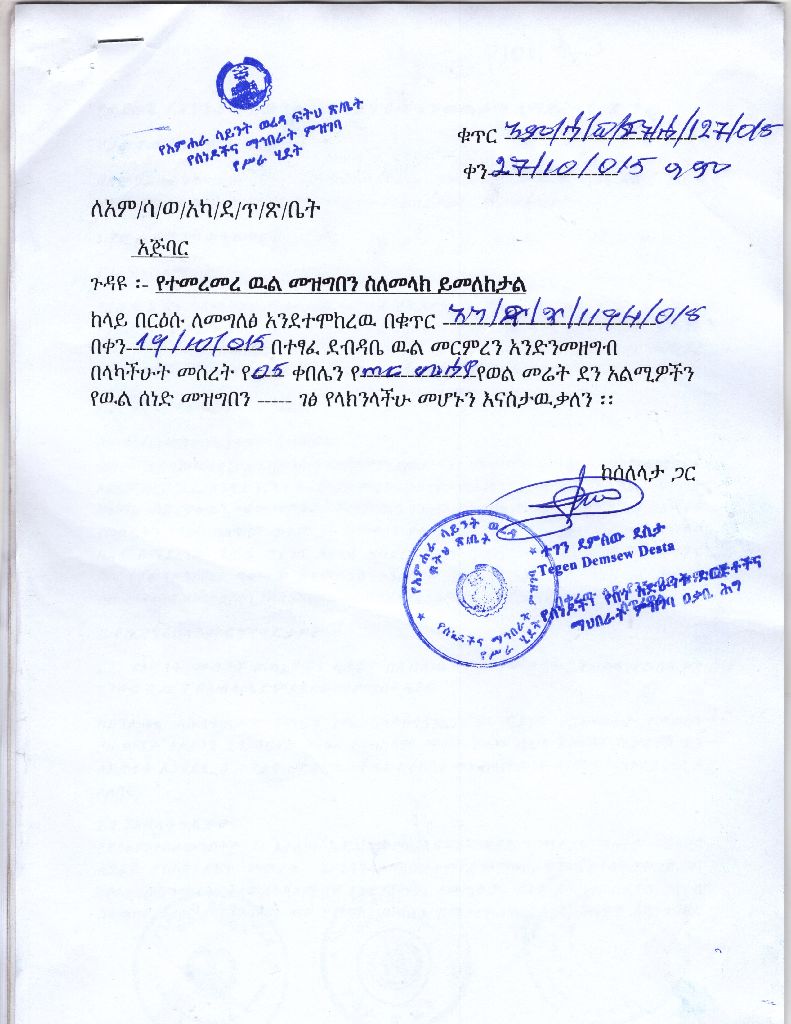 የአምሐራ ሳይንት ወረዳ ፍትህ ጽ/ቤት
የሰነዶችና ማኅበራት ምዝገባ
የሥራ ሂደት
ቁጥር /127/015
ቀን 27/10/015 ዓ.ም
ለአም/ሳ/ወ/አካ/ደ/ጥ/ጽ/ቤት
አጅባር
ጉዳዩ ፡- የተመረመረ ዉል መዝግበን ስለመላክ ይመለከታል
ከላይ በርዕሱ ለመግለፅ እንደተሞከረዉ በቁጥር /015
በቀን 19/10/015 በተፃፈ ደብዳቤ ዉል መርምረን እንድንመዘግብ
በላካችሁት መሰረት የ05 ቀበሌን የ የወል መሬት ደን አልሚዎችን
የዉል ሰነድ መዝግበን ----- ገፅ የላክንላችሁ መሆኑን እናስታዉቃለን ፡፡
ከሰለላታ ጋር
የአምሐራ ሳይንት ወረዳ
ፍትህ ጽ/ቤት
የሰነዶችና ማኅበራት
የሥራ ሂደት
ተገን ደምሰው ደስታ
Tegen Demsew Desta
ማህበራት ምዝገባ ዐቃቢ ሕግ